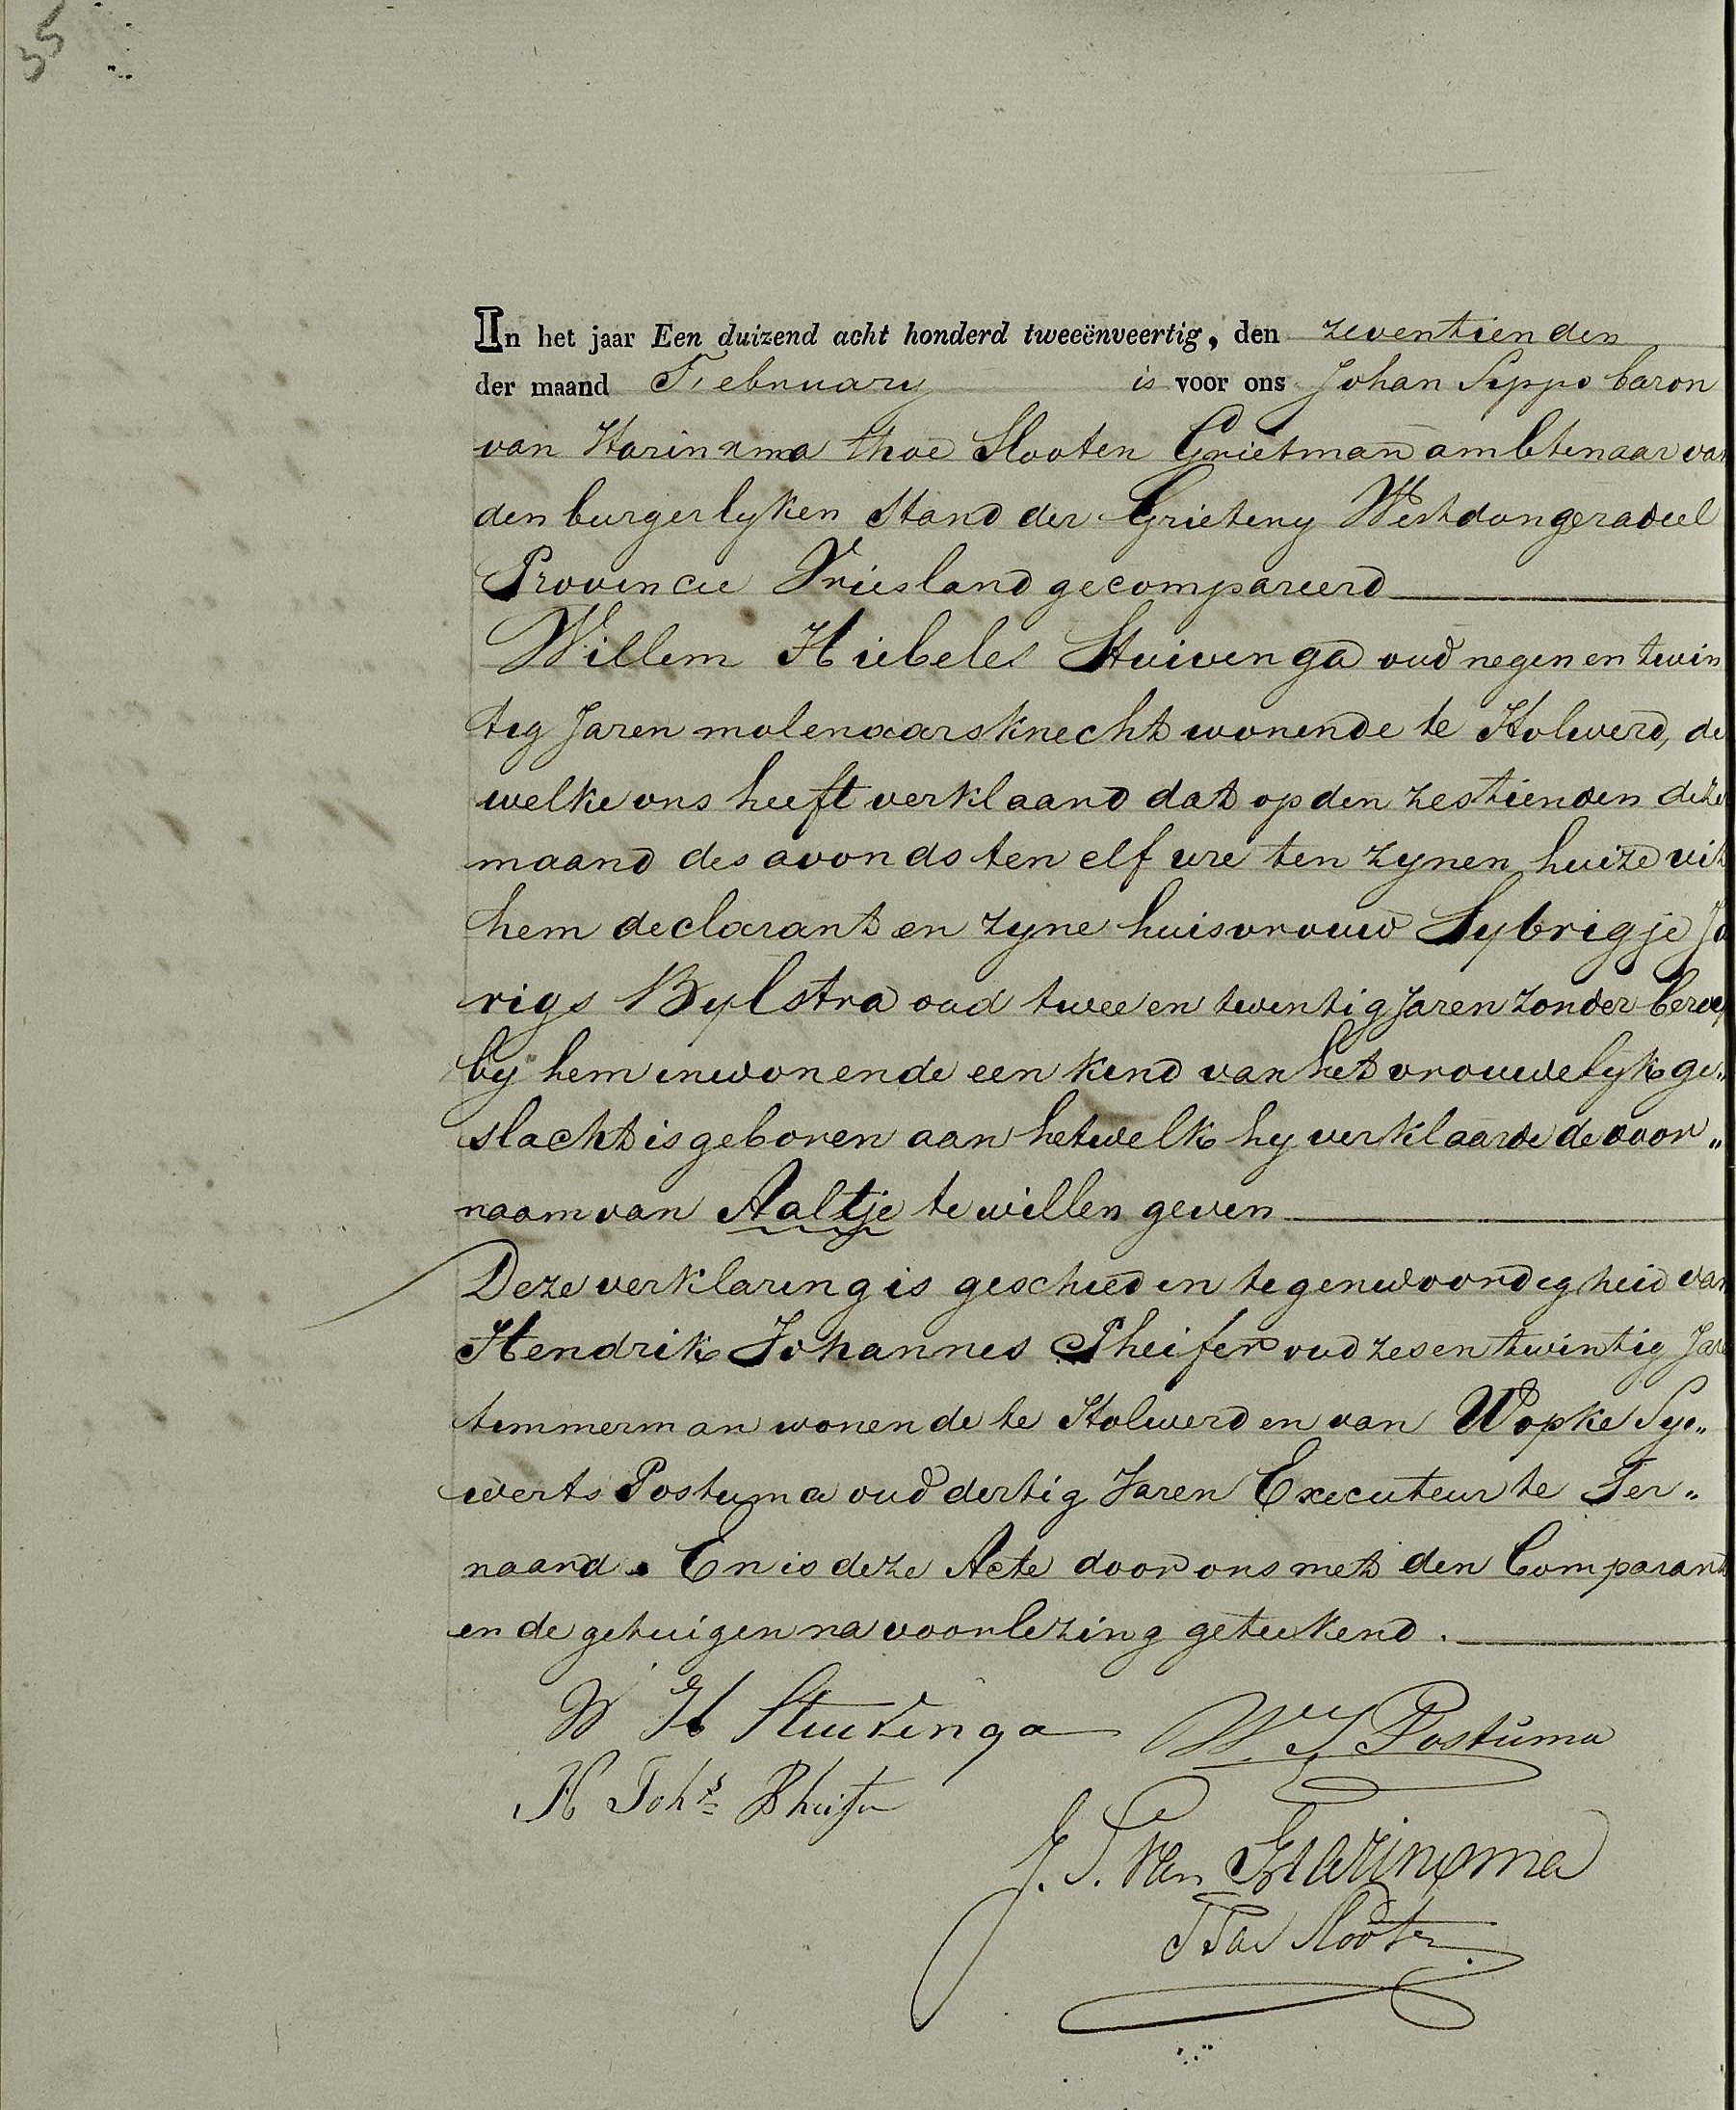 35
In het jaar Een duizend acht honderd tweeënveertig, den zeventienden
der maand February is voor ons Johan Sippo baron
van Harinxma thoe Slooten Grietman ambtenaar van
den burgerlyken Stand der Grieteny Westdongeradeel
Provincie Vriesland gecompareerd
Willem Hiebeles Stuivenga oud negen en twin
tig Jaren molenaarsknecht wonende te Holwerd, de
welke ons heeft verklaard dat op den zestienden dezer
maand des avonds ten elf ure ten zynen huize uit
hem declarant en zyne huisvrouw Sybrigje Jo
rigs Bylstra oud twee en twintig Jaren zonder beroep
by hem inwonende een kind van het vrouwelyk ge„
slacht is geboren aan hetwelk hy verklaarde de voor„
naam van Aaltje te willen geven
Deze verklaring is geschied in tegenwoordigheid van
Hendrik Johannes Pheifer oud zes en twintig Jare
timmerman wonende te Holwerd en van Wopke Sye„
werts Postuma oud dertig Jaren Executeur te Ter„
naard. En is deze Acte door ons met den Comparant
en de getuigen na voorlezing geteekend.
W H Stuivenga W. S Postuma
H Johs Pheifer
J. S. van Harinxma
Thoe Slooten